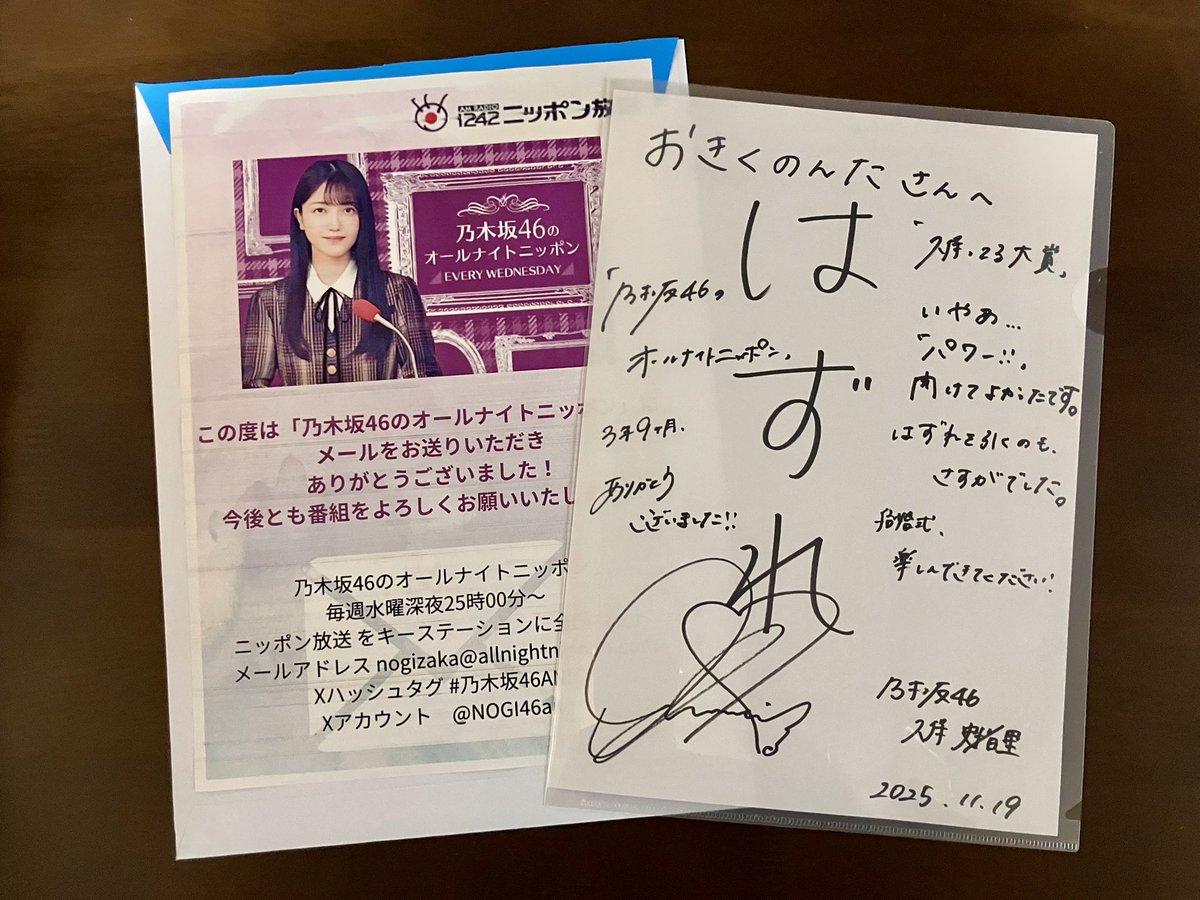 AM RADIO
1242 ニッポン放
乃木坂46の
オールナイトニッポン
EVERY WEDNESDAY
この度は「乃木坂46のオールナイトニッポ
メールをお送りいただき
ありがとうございました！
今後とも番組をよろしくお願いいたし
乃木坂46のオールナイトニッポ
毎週水曜深夜25時00分～
ニッポン放送 をキーステーションに全
メールアドレス nogizaka@allnightn
Xハッシュタグ #乃木坂46AN
Xアカウント　@NOGI46a
おきくのんた さんへ
はずれ
「乃木坂46の
オールナイトニッポン」
3年9ヶ月、
ありがとう
ございました!!
大賞」
いやぁ…
「パワー!!」
開けてよかったです。
はずれを引くのも、
さすがでした。
結婚式、
楽しんできてください!
乃木坂46
久保 史緒里
2025.11.19